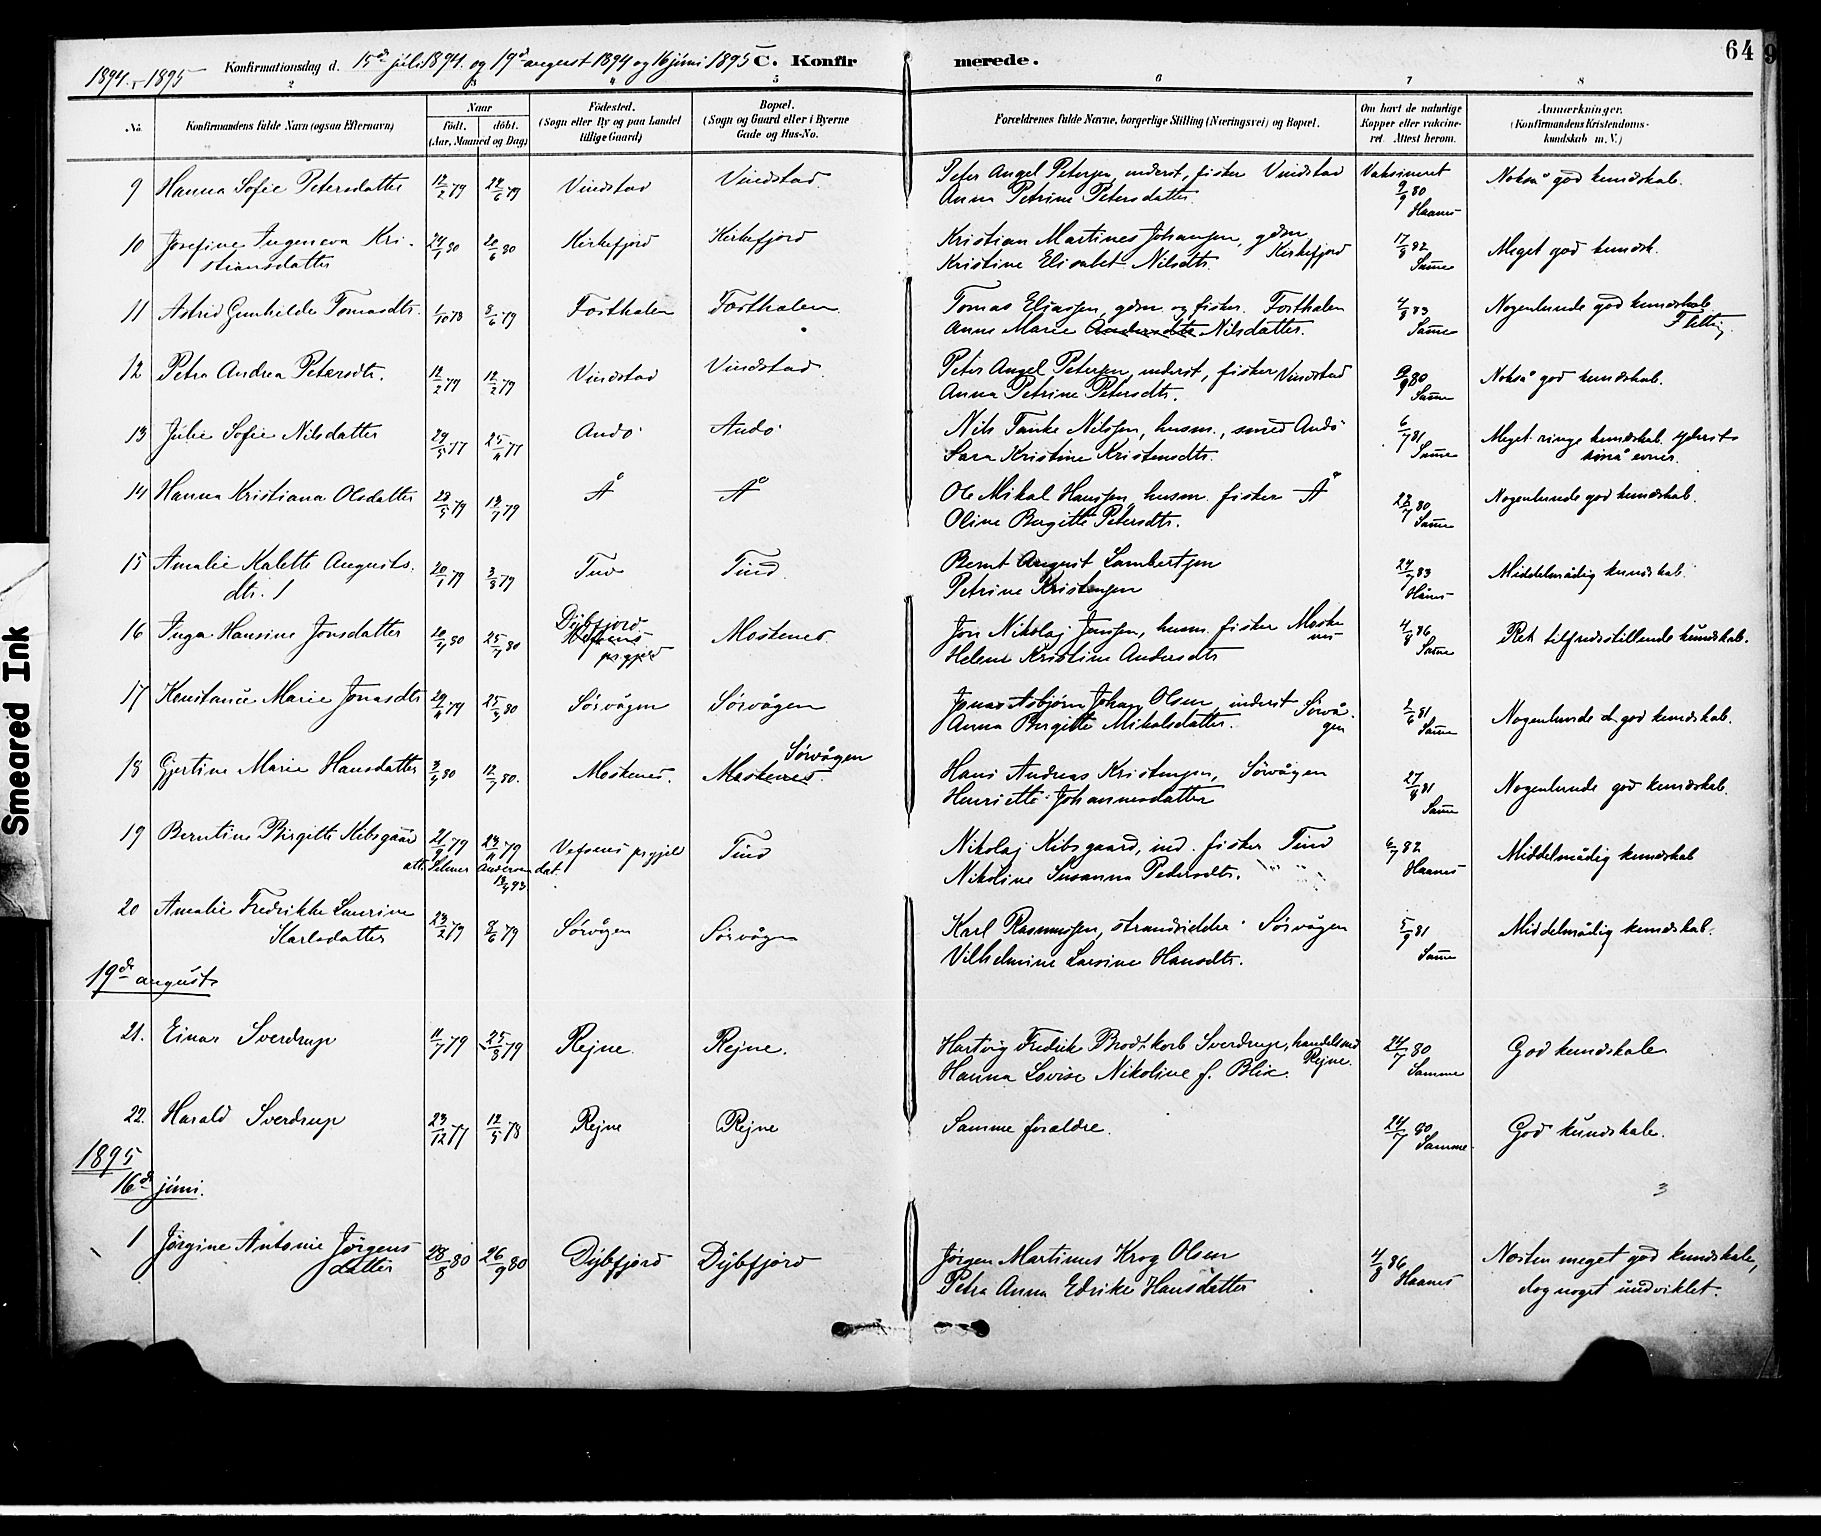 64 9
1894 - 1895 Konfirmationsdag d. 15de juli 1894 og 19de august 1894 og 16 juni 1895 C. Konfirmerede.
2 3 4 5 6 7 8
No. Konfirmandens fulde Navn (ogsaa Efternavn) Naar født. døbt. (Aar, Maaned og Dag) Fødested. (Sogn eller By og paa Landet tillige Gaard.) Bopæl. (Sogn og Gaard eller i Byerne Gade og Hus-No. Forældrenes fulde Navne, borgerlige Stilling (Næringsvei) og Bopæl. Om havt de naturlige Kopper eller vakcineret. Attest herom. Anmærkninger. (Konfirmandens Kristendomskundskab m. V.)
9 Hanna Sofie Petersdatter 12/2 79 22/6 79 Vindstad Vindstad. Peter Angel Petersen, inderst, fisker Vindstad Vaksineret 9/9 80 Nokså god kundskab.
Anna Petrine Petersdatter. Haanes
10 Josefine Ingeneva Kri- 24/1 80 20/6 80 Kirkefjord Kirkefjord Kristian Martines Johansen, gdm 17/8 82 Meget god kundsk.
stiansdatter Kristine Elisabet Nilsdtr. Kirkefjord Samme
11 Astrid Gunhilde Tomasdtr. 1/10 78 8/6 79 Forsthalen Forsthalen. Tomas Eliassen, gdm og fisker. Forsthalen 4/8 83 Nogenlunde god kundskab
Anne Marie Andersdtr Nilsdatter. Samme Flittig
12 Petra Andrea Petersdtr. 12/2 79 12/2 79 Vindstad Vindstad. Peter Angel Petersen, inderst, fisker Vindstad 9/9 80 Nokså god kundskab.
Anna Petrine Petersdtr. Samme
13 Julie Sofie Nilsdatter 29/5 77 25/11 77 Andø Andø Nils Tanke Nilssen, husm., smed Andø 6/7 81 Meget ringe kundskab. yderst
Sara Kristine Kristensdtr. Samme små evner.
14 Hanna Kristiana Olsdatter 28/5 79 13/7 79 Å Å Ole Mikal Hanssen, husm. fisker Å 28/7 80 Nogenlunde god kundskab.
Oline Bergitte Petersdtr. Samme
15 Amalie Kalette Augusts. 20/1 79 3/8 79 Tind Tind. Bernt August Lambertsen 24/7 83 Middelmådig kundskab.
dtr. 1 Petrine Kristensen Hånes
16 Inga Hansine Jonsdatter 20/4 80 25/7 80 Dybfjord Vefsens prgjeld Moskenes. Jon Nikolaj Jonsen, husm. fisker Moskenes 4/8 86 Ret tilfredsstillende kundskab.
Helene Kristine Andersdtr Samme
17 Konstance Marie Jonasdtr 29/11 79 25/3 80 Sørvågen Sørvågen Jonas Asbjørn Johan Olsen, inderst Sørvå- 2/6 81 Nogenlunde god kundskab.
Anna Bergitte Mikalsdatter. gen Samme
18 Gjertine Marie Hansdatter 3/4 80 12/7 80. Moskenes. Moskenes. Sørvågen Hans Andreas Kristensen, Sørvågen 27/8 81 Nogenlunde god kundskab.
Henriette Johannesdatter Samme
19 Berntine Birgitte Kibsgaard 21/9 79 23/11 79 Vefsens prgjeld Tind Nikolaj Kibsgaard, ind. fisker Tind 6/7 82 Middelmådig kundskab
att. Selmer Andersen dat. 13/4 93 Nikoline Susanna Pedersdtr. Haanes
20 Amalie Fredrikke Laurine 23/2 79 8/6 79 Sørvågen Sørvågen Karl Rasmussen, strandsidder Sørvågen 5/9 81 Middelmådig kundskab.
Karlsdatter Vilhelmine Larsine Hansdtr. Samme
19de august
21. Einar Sverdrup 11/7 79 25/8 79 Rejne. Rejne. Hartvig Fredrik Brodtkorb Sverdrup, handelsmd 24/7 80 God kundskab
Hanna Lovise Nikoline f. Blix. Rejne. Samme
22. Harald Sverdrup 23/12 77 12/5 78 Rejne Rejne Samme forældre. 24/7 80 God kundskab.
Samme
1895
16de juni. 3
1 Jørgine Antonie Jørgens 28/8 80 26/9 80 Dybfjord Dybfjord Jørgen Martinus Krog Olsen 4/8 86 Næsten meget god kundskab,
datter Petra Anna Edrike Hansdatter Haanes dog noget uudviklet.
Smeared Ink